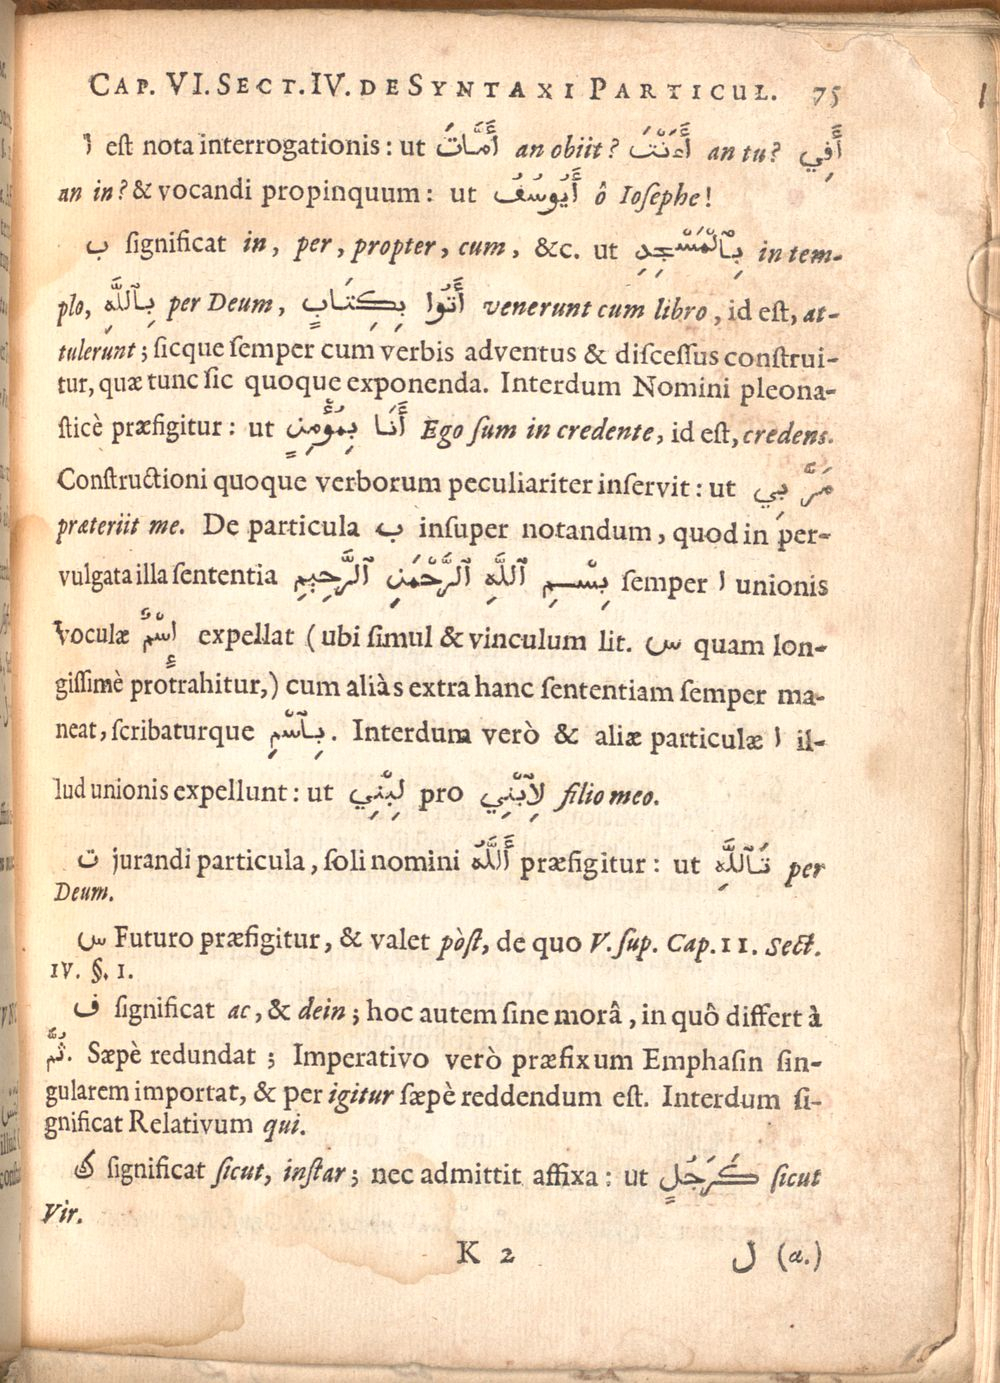 CAP. VI. SECT. IV. DE SYNTAXI PARTICUL. 75
ا est nota interrogationis: ut أَمَّاتَ an obiit? أَءَنْتَ an tu? أَفِي
an in? & vocandi propinquum: ut أَيُوسُفُ ô Iosephe!
ب significat in, per, propter, cum, &c. ut بِٱلْمَسْجِدِ in tem-
plo, بِٱللَّهِ per Deum, أَتُوا بِكِتَابٍ venerunt cum libro, id est, at-
tulerunt; sicque semper cum verbis adventus & discessus construi-
tur, quæ tunc sic quoque exponenda. Interdum Nomini pleona-
sticè præfigitur: ut أَنَا بِمُؤْمِنٍ Ego sum in credente, id est, credens.
Constructioni quoque verborum peculiariter inservit: ut مَرَّ بِي
præteriit me. De particula ب insuper notandum, quod in per-
vulgata illa sententia بِسْمِ ٱللَّهِ ٱلرَّحْمَنِ ٱلرَّحِيمِ semper ا unionis
voculæ اِسْمٌ expellat (ubi simul & vinculum lit. س quam lon-
gissimè protrahitur,) cum aliàs extra hanc sententiam semper ma-
neat, scribaturque بِٱسْمِ. Interdum verò & aliæ particulæ ا il-
lud unionis expellunt: ut لِبْنِي pro لِٱبْنِي filio meo.
ت jurandi particula, soli nomini أَللَّهُ præfigitur: ut تَٱللَّهِ per
Deum.
س Futuro præfigitur, & valet pòst, de quo V. sup. Cap. II. Sect.
IV. §. 1.
ف significat ac, & dein; hoc autem sine morâ, in quô differt à
ثُمَّ. Sæpè redundat; Imperativo verò præfixum Emphasin sin-
gularem importat, & per igitur sæpè reddendum est. Interdum si-
gnificat Relativum qui.
ك significat sicut, instar; nec admittit affixa: ut كَرَجُلٍ sicut
Vir.
K 2 ل (a.)